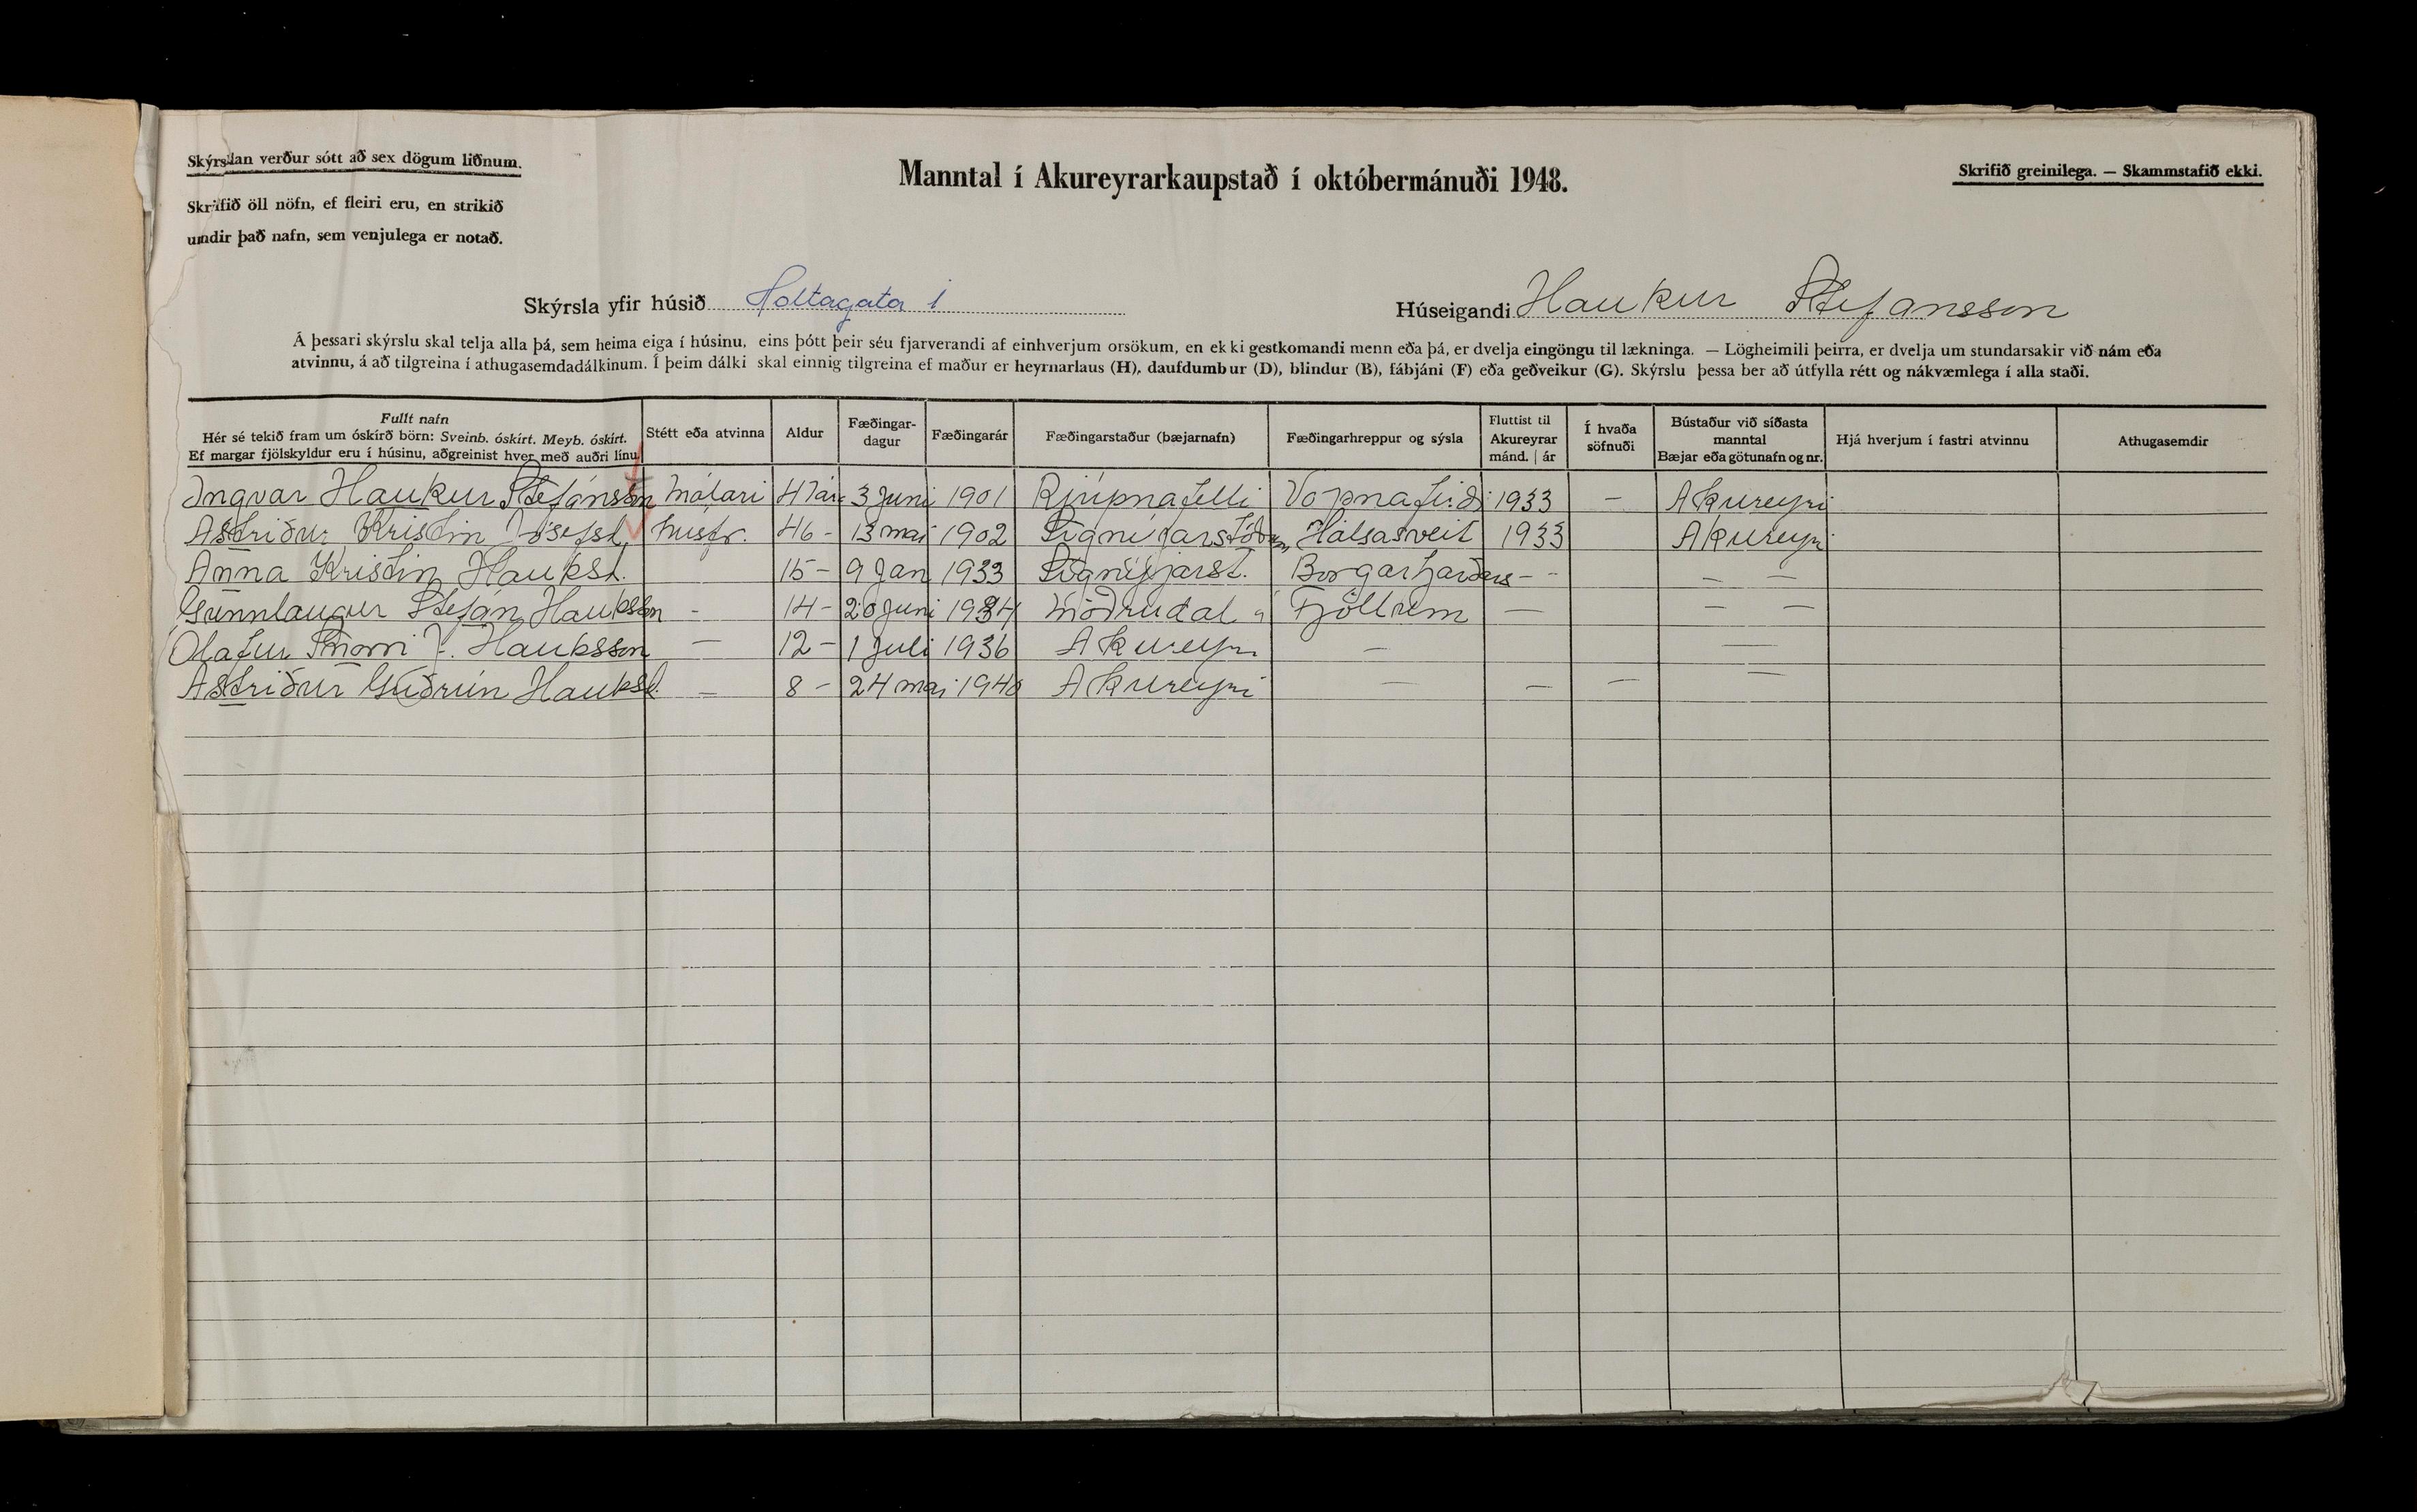 Skýrslan verður sótt að sex dögum liðnum.
Skrifið öll nöfn, ef fleiri eru, en strikið
undir það nafn, sem venjulega er notað.
Manntal í Akureyrarkaupstað í októbermánuði 1948.
Skrifið greinilega. — Skammstafið ekki.
Skýrsla yfir húsið Holtagata 1
Húseigandi Haukur Stefansson
Á þessari skýrslu skal telja alla þá, sem heima eiga í húsinu, eins þótt þeir séu fjarverandi af einhverjum orsökum, en ekki gestkomandi menn eða þá, er dvelja eingöngu til lækninga. — Lögheimili þeirra, er dvelja um stundarsakir við nám eða
atvinnu, á að tilgreina í athugasemdadálkinum. Í þeim dálki skal einnig tilgreina ef maður er heyrnarlaus (H), daufdumbur (D), blindur (B), fábjáni (F) eða geðveikur (G). Skýrslu þessa ber að útfylla rétt og nákvæmlega í alla staði.
Fullt nafn
Hér sé tekið fram um óskírð börn: Sveinb. óskírt. Meyb. óskírt.
Ef margar fjölskyldur eru í húsinu, aðgreinist hver með auðri línu
Stétt eða atvinna
Aldur
Fæðingar-
dagur
Fæðingarár
Fæðingarstaður (bæjarnafn)
Fæðingarhreppur og sýsla
Fluttist til
Akureyrar
mánd. | ár
Í hvaða
söfnuði
Bústaður við síðasta
manntal
Bæjar eða götunafn og nr.
Hjá hverjum í fastri atvinnu
Athugasemdir
Ingvar Haukur Stefánsson málari 47 ár 3 Juni 1901 Rjúpnafelli Vopnafirði 1933 — Akureyri
Astriður Kristin Jósefsd. husfr. 46 - 13 mai 1902 Signýjarstöðum Hálsasveit 1933 Akureyri
Anna Kristin Hauksd. 15 - 9 Jan 1933 Signýjarst. Borgarfjarðars - - — —
Gunnlaugur Stefán Hauksson - 14 - 20 Juni 1934 Möðrudal á Fjöllum — — —
Olafur Snorri J. Hauksson — 12 - 1 Juli 1936 Akureyri — —
Astriður Guðrún Hauksd. — 8 - 24 mai 1940 Akureyri — — — —